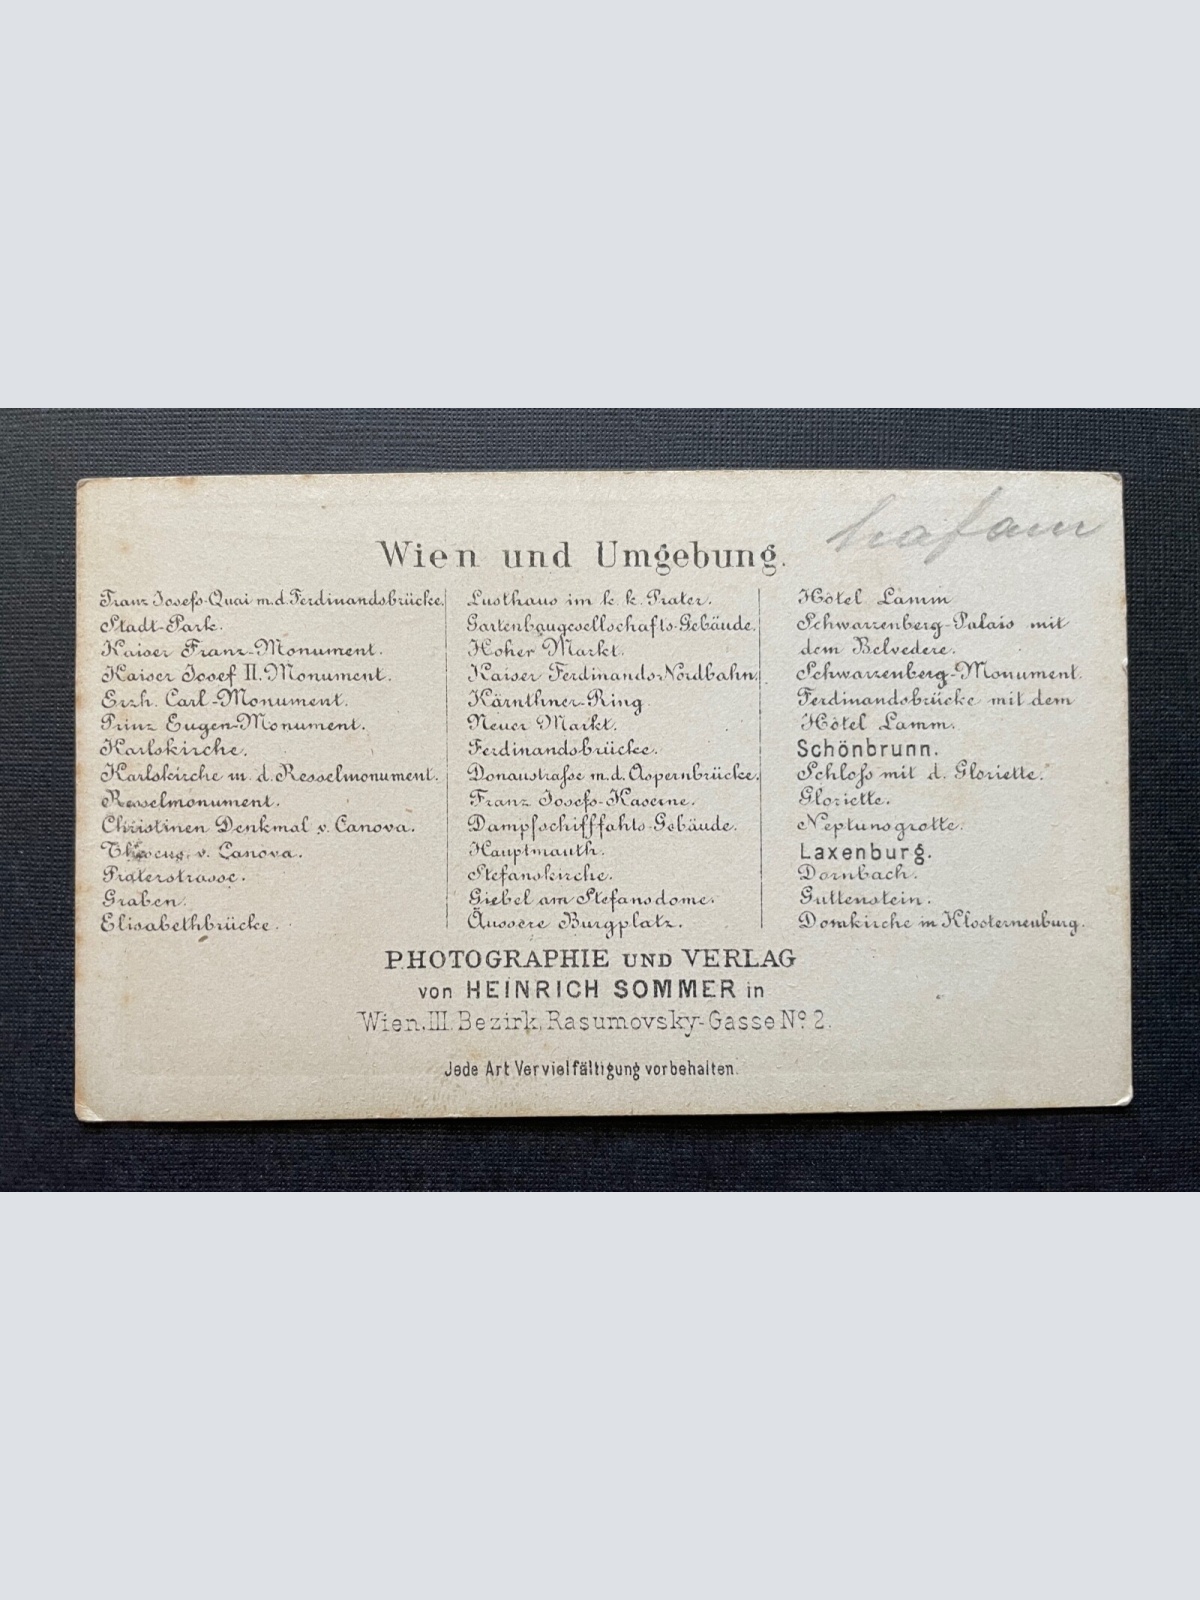 Wien und Umgebung.
Franz Josefs-Quai m.d. Ferdinandsbrücke.
Stadt-Park.
Kaiser Franz-Monument.
Kaiser Josef II.-Monument.
Erzh. Carl-Monument.
Prinz Eugen-Monument.
Karlskirche.
Karlskirche m. d. Resselmonument.
Resselmonument.
Christinen Denkmal v. Canova.
Theseus, v. Canova.
Praterstrasse.
Graben.
Elisabethbrücke.
Lusthaus im k. k. Prater.
Gartenbaugesellschafts-Gebäude.
Hoher Markt.
Kaiser Ferdinands-Nordbahn.
Kärnthner-Ring.
Neuer Markt.
Ferdinandsbrücke.
Donaustraſse m.d. Aspernbrücke.
Franz Josefs-Kaserne.
Dampfschifffahts-Gebäude.
Hauptmauth.
Stefanskirche.
Giebel am Stefansdome.
Äussere Burgplatz.
Hôtel Lamm
Schwarzenberg-Palais mit
dem Belvedere.
Schwarzenberg-Monument.
Ferdinandsbrücke mit dem
Hôtel Lamm.
Schönbrunn.
Schloſs mit d. Gloriette.
Gloriette.
Neptunsgrotte.
Laxenburg.
Dornbach.
Guttenstein.
Domkirche in Klosterneuburg.
PHOTOGRAPHIE UND VERLAG
von HEINRICH SOMMER in
Wien, III. Bezirk, Rasumovsky-Gasse Nº 2.
Jede Art Vervielfältigung vorbehalten.